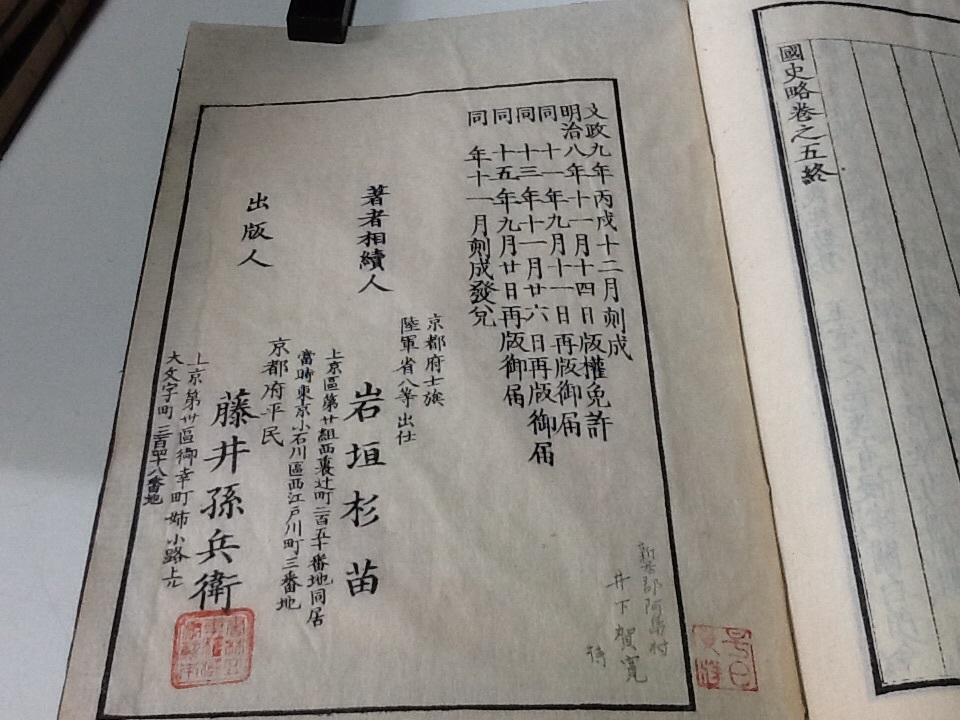 國史略卷之五終
文政九年丙戌十二月刻成
明治八年十一月十四日版權免許
同十一年九月十一日再版御届
同十三年十一月廿六日再版御届
同十五年九月廿日再版御届
同年十一月刻成發兌
著者相續人
京都府士族
陸軍省八等出仕
岩垣杉苗
上京區第廿組西裏辻町二百五十番地同居
當時東京小石川區西江戸川町三番地
出版人
京都府平民
藤井孫兵衛
上京第卅區御幸町姉小路上ル
大文字町三百四十八番地
郡阿島村
井下賀寛